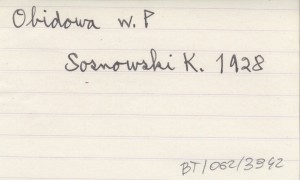 Obidowa w. P
Sosnowski K. 1928
BT/062/3942